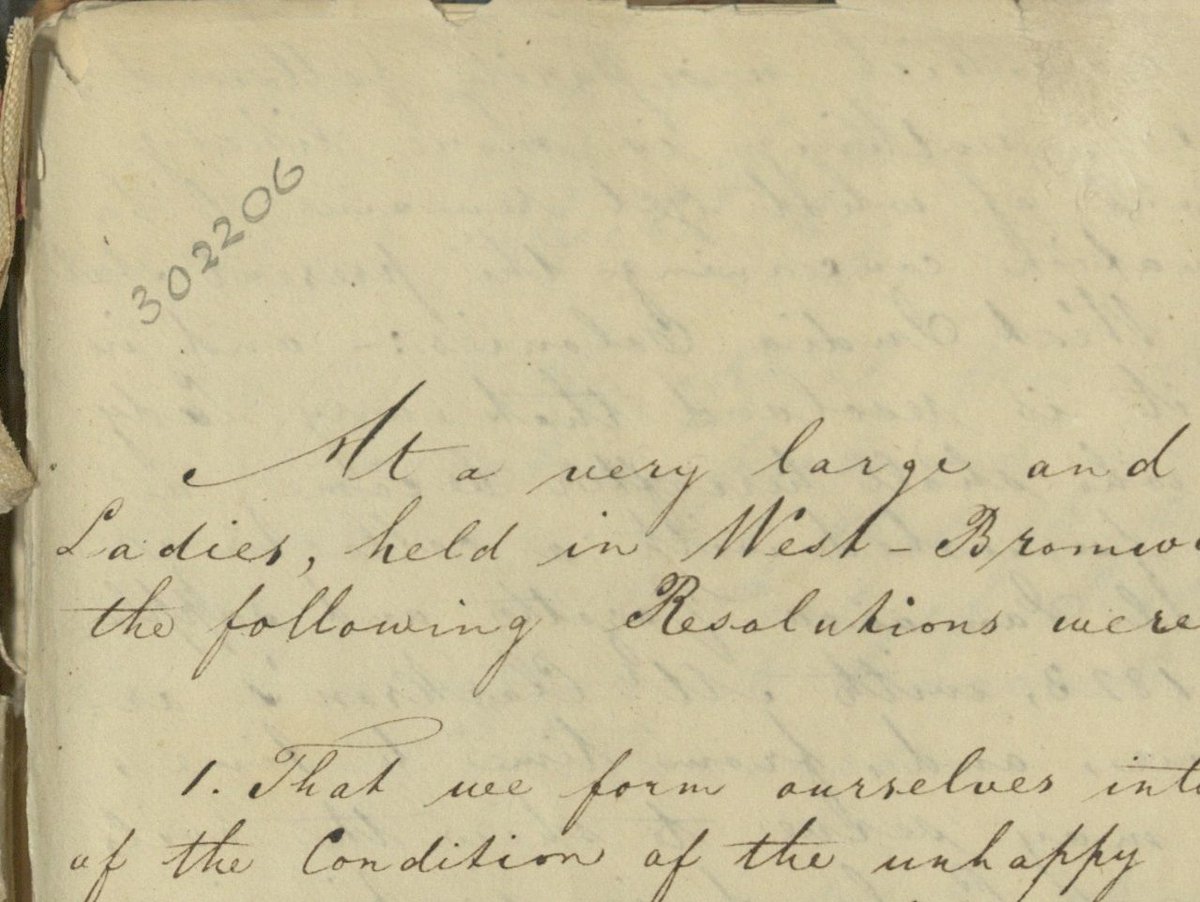 302206
At a very large and
Ladies, held in West-Bromw
the following Resolutions were
1. That we form ourselves into
of the Condition of the unhappy